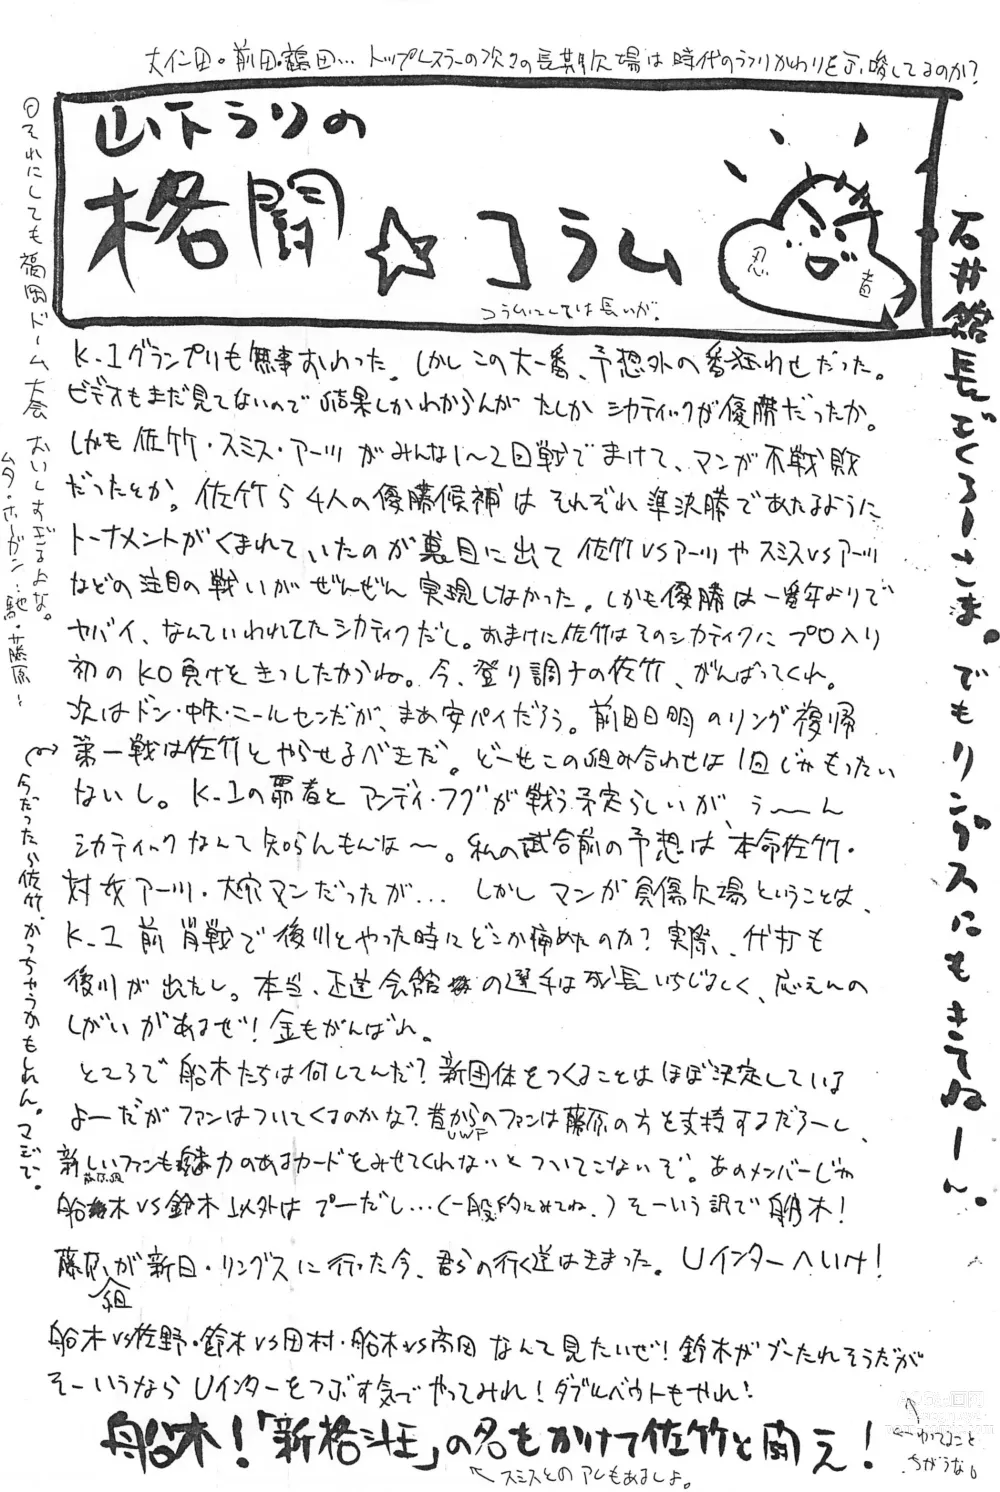 大仁田。前田。鶴田… トップレスラーの次々の長期欠場は時代のうつりかわりを示唆してるのか?
山下うりの
格闘☆コラム
忍
者
コラムにしては長いが。
石井館長ごくろーさま。でもリングスにもきてねーん。
◎それにしても福岡ドーム大会おいしすぎるよな。
ムタ・ホーガン…馳・藤原〜
K-1グランプリも無事おわった。しかしこの大一番、予想外の番狂わせだった。
ビデオもまだ見てないので結果しかわからんがたしかシカティックが優勝だったか。
しかも佐竹・スミス・アーツがみんな1〜2回戦でまけて、マンが不戦敗
だったとか。佐竹ら4人の優勝候補はそれぞれ準決勝であたるように
トーナメントがくまれていたのが裏目に出て佐竹VSアーツやスミスVSアーツ
などの注目の戦いがぜんぜん実現しなかった。しかも優勝は一番年よりで
ヤバイ、なんていわれてたシカティクだし。おまけに佐竹はそのシカティクにプロ入り
初のKO負けをきっしたからね。今、登り調子の佐竹、がんばってくれ。
次はドン・中矢・ニールセンだが、まあ安パイだろう。前田日明のリング復帰
第一戦は佐竹とやらせるべきだ。どーもこの組み合わせは1回じゃもったい
ないし。K-1の覇者とアンディ・フグが戦う予定らしいが、う〜ん
シカティックなんて知らんもんな〜。私の試合前の予想は、本命佐竹・
対抗アーツ・大穴マンだったが… しかしマンが負傷欠場ということは、
K-1前哨戦で後川とやった時にどこか痛めたのか?実際、代打も
後川が出たし。本当、正道会館の選手は成長いちじるしく、応えんの
しがいがあるぜ!金もがんばれ。
(今だったら佐竹、かっちゃうかもしれん。マジで。
ところで船木たちは何してんだ?新団体をつくることはほぼ決定している
よーだがファンはついてくるのかな?昔からのファンは藤原の方を支持するだろーし、
UWF
新しいファンも魅力のあるカードをみせてくれないとついてこないぞ。あのメンバーじゃ
船木VS鈴木以外はプーだし…(一般的にみてね。)そーいう訳で船木!
藤原が新日・リングスに行った今、君らの行く道はきまった。Uインターへいけ!
組
船木VS佐野・鈴木VS田村・船木VS高田なんて見たいぜ!鈴木がブーたれそうだが
そーいうならUインターをつぶす気でやってみれ!ダブルベウトもやれ!
船木!「新格斗王」の名もかけて佐竹と闘え!
←スミスとのアレもあるしよ。
←いってること
ちがうな。